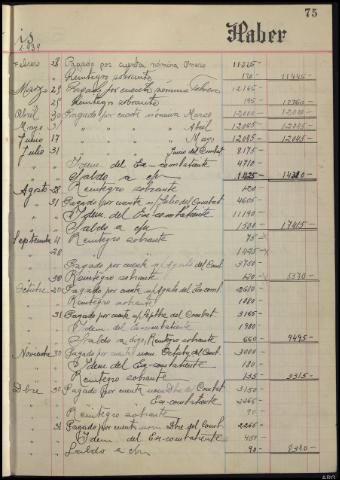 75
is
1.939
Haber
Febrero 28 Pagado por cuenta nómina Enero 11225-
" " Reintegro sobrante 11445-
Marzo 25 Pagado por cuenta nómina Febrero 12165-
" 25 Reintegro sobrante 195- 12360-
Abril 30 Pagado por cuenta nómina Marzo 12000- 12000-
Mayo 31 " " " Abril 12045- 12045-
Junio 17 " " " Mayo 12045- 12045-
Julio 31 " " " Junio del Combat 8175-
" " Idem del Ex-combatiente 4710
" " Saldo a c/n 1425 14310-
Agosto 28 Reintegro sobrante 120-
" 31 Pagado por cuenta n/ Julio del Combat 4605-
" " Idem del Ex-combatiente 11190-
" " Saldo a c/n 1500 17415-
Septiembre 4 Reintegro sobrante 75-
" 28 1425-
" " Pagado por cuenta n/ Agosto del Comt. 3750-
" 30 Reintegro sobrante 120- 5370-
Octubre 20 Pagado por cuente n/ Agosto del Ex comt 2610-
" " Reintegro sobrante 1080-
" 31 Pagado por cuente n/ Septbre del Combat 3165-
" " Idem del Ex-combatiente 1980
" " Saldo a digo, Reintegro sobrante 660 9495-
Noviembre 30 Pagado por cuenta nom Octubre del Comt. 3000-
" " Idem del Ex-combatiente 180-
" " Reintegro sobrante 135 3315-
Dbre 30 Pagado por cuenta nom Nbre del Combat 3150-
" " Ex-combatiente 2265-
" " Reintegro sobrante 90-
" 31 Pagado por cuenta nom Dbre del Combat 2265-
" " Idem del Ex-combatiente
" " Saldo a c/n 90-